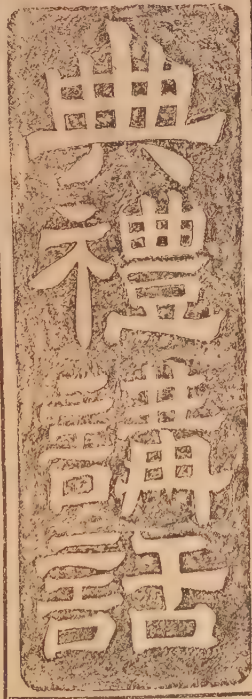 典禮講話